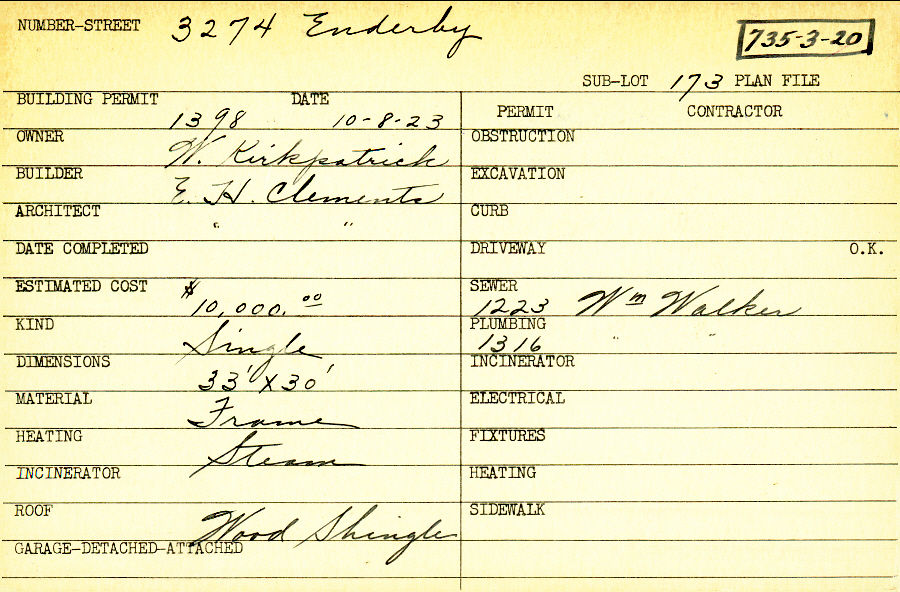 NUMBER-STREET 3274 Enderby
735-3-20
SUB-LOT 173 PLAN FILE
BUILDING PERMIT 1398 DATE 10-8-23
OWNER W. Kirkpatrick
BUILDER E. H. Clements
ARCHITECT " "
DATE COMPLETED
ESTIMATED COST $10,000.00
KIND Single
DIMENSIONS 33' X 30'
MATERIAL Frame
HEATING Steam
INCINERATOR
ROOF Wood Shingle
GARAGE-DETACHED-ATTACHED
PERMIT CONTRACTOR
OBSTRUCTION
EXCAVATION
CURB
DRIVEWAY O.K.
SEWER 1223 Wm Walker
PLUMBING 1316 " "
INCINERATOR
ELECTRICAL
FIXTURES
HEATING
SIDEWALK